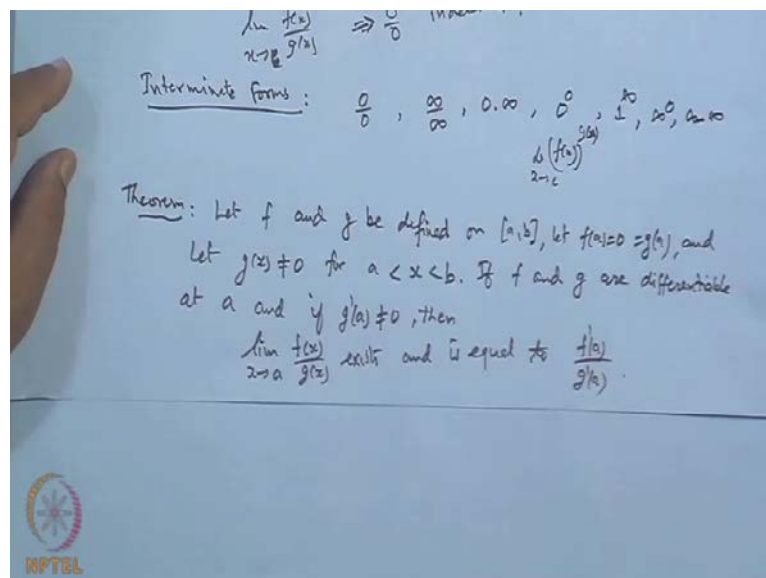 lim f(x)/g(x) ⇒ 0/0
x→c
Interminite forms : 0/0 , ∞/∞ , 0.∞ , 0^0 , 1^∞ , ∞^0, ∞-∞
lt (f(x))^g(x)
x→c
Theorem: Let f and g be defined on [a,b], let f(a)=0=g(a), and
let g(x)≠0 for a<x<b. If f and g are differentiable
at a and if g'(a)≠0, then
lim f(x)/g(x) exists and is equal to f'(a)/g'(a).
x→a
NPTEL